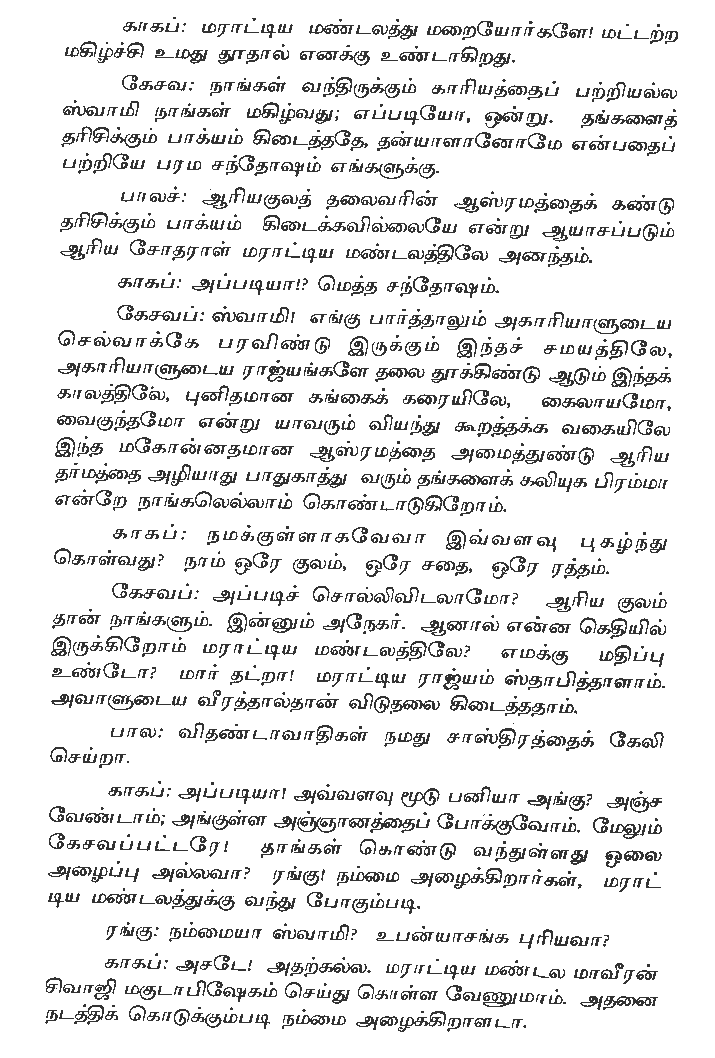 காகப்: மராட்டிய மண்டலத்து மறையோர்களே! மட்டற்ற
மகிழ்ச்சி உமது தூதால் எனக்கு உண்டாகிறது.
கேசவ: நாங்கள் வந்திருக்கும் காரியத்தைப் பற்றியல்ல
ஸ்வாமி நாங்கள் மகிழ்வது; எப்படியோ, ஒன்று. தங்களைத்
தரிசிக்கும் பாக்யம் கிடைத்ததே, தன்யாளானோமே என்பதைப்
பற்றியே பரம சந்தோஷம் எங்களுக்கு.
பாலச்: ஆரியகுலத் தலைவரின் ஆஸ்ரமத்தைக் கண்டு
தரிசிக்கும் பாக்யம் கிடைக்கவில்லையே என்று ஆயாசப்படும்
ஆரிய சோதராள் மராட்டிய மண்டலத்திலே அனந்தம்.
காகப்: அப்படியா!? மெத்த சந்தோஷம்.
கேசவப்: ஸ்வாமி! எங்கு பார்த்தாலும் அகாரியாளுடைய
செல்வாக்கே பரவிண்டு இருக்கும் இந்தச் சமயத்திலே,
அகாரியாளுடைய ராஜ்யங்களே தலை தூக்கிண்டு ஆடும் இந்தக்
காலத்திலே, புனிதமான கங்கைக் கரையிலே, கைலாயமோ,
வைகுந்தமோ என்று யாவரும் வியந்து கூறத்தக்க வகையிலே
இந்த மகோன்னதமான ஆஸ்ரமத்தை அமைத்துண்டு ஆரிய
தர்மத்தை அழியாது பாதுகாத்து வரும் தங்களைக் கலியுக பிரம்மா
என்றே நாங்கலெல்லாம் கொண்டாடுகிறோம்.
காகப்: நமக்குள்ளாகவேவா இவ்வளவு புகழ்ந்து
கொள்வது? நாம் ஒரே குலம், ஒரே சதை, ஒரே ரத்தம்.
கேசவப்: அப்படிச் சொல்லிவிடலாமோ? ஆரிய குலம்
தான் நாங்களும். இன்னும் அநேகர். ஆனால் என்ன கெதியில்
இருக்கிறோம் மராட்டிய மண்டலத்திலே? எமக்கு மதிப்பு
உண்டோ? மார் தட்றா! மராட்டிய ராஜ்யம் ஸ்தாபித்தாளாம்.
அவாளுடைய வீரத்தால்தான் விடுதலை கிடைத்ததாம்.
பால: விதண்டாவாதிகள் நமது சாஸ்திரத்தைக் கேலி
செய்றா.
காகப்: அப்படியா! அவ்வளவு மூடு பனியா அங்கு? அஞ்ச
வேண்டாம்; அங்குள்ள அஞ்ஞானத்தைப் போக்குவோம். மேலும்
கேசவப்பட்டரே! தாங்கள் கொண்டு வந்துள்ளது ஓலை
அழைப்பு அல்லவா? ரங்கு! நம்மை அழைக்கிறார்கள், மராட்
டிய மண்டலத்துக்கு வந்து போகும்படி.
ரங்கு: நம்மையா ஸ்வாமி? உபன்யாசங்க புரியவா?
காகப்: அசடே! அதற்கல்ல. மராட்டிய மண்டல மாவீரன்
சிவாஜி மகுடாபிஷேகம் செய்து கொள்ள வேணுமாம். அதனை
நடத்திக் கொடுக்கும்படி நம்மை அழைக்கிறாளடா.